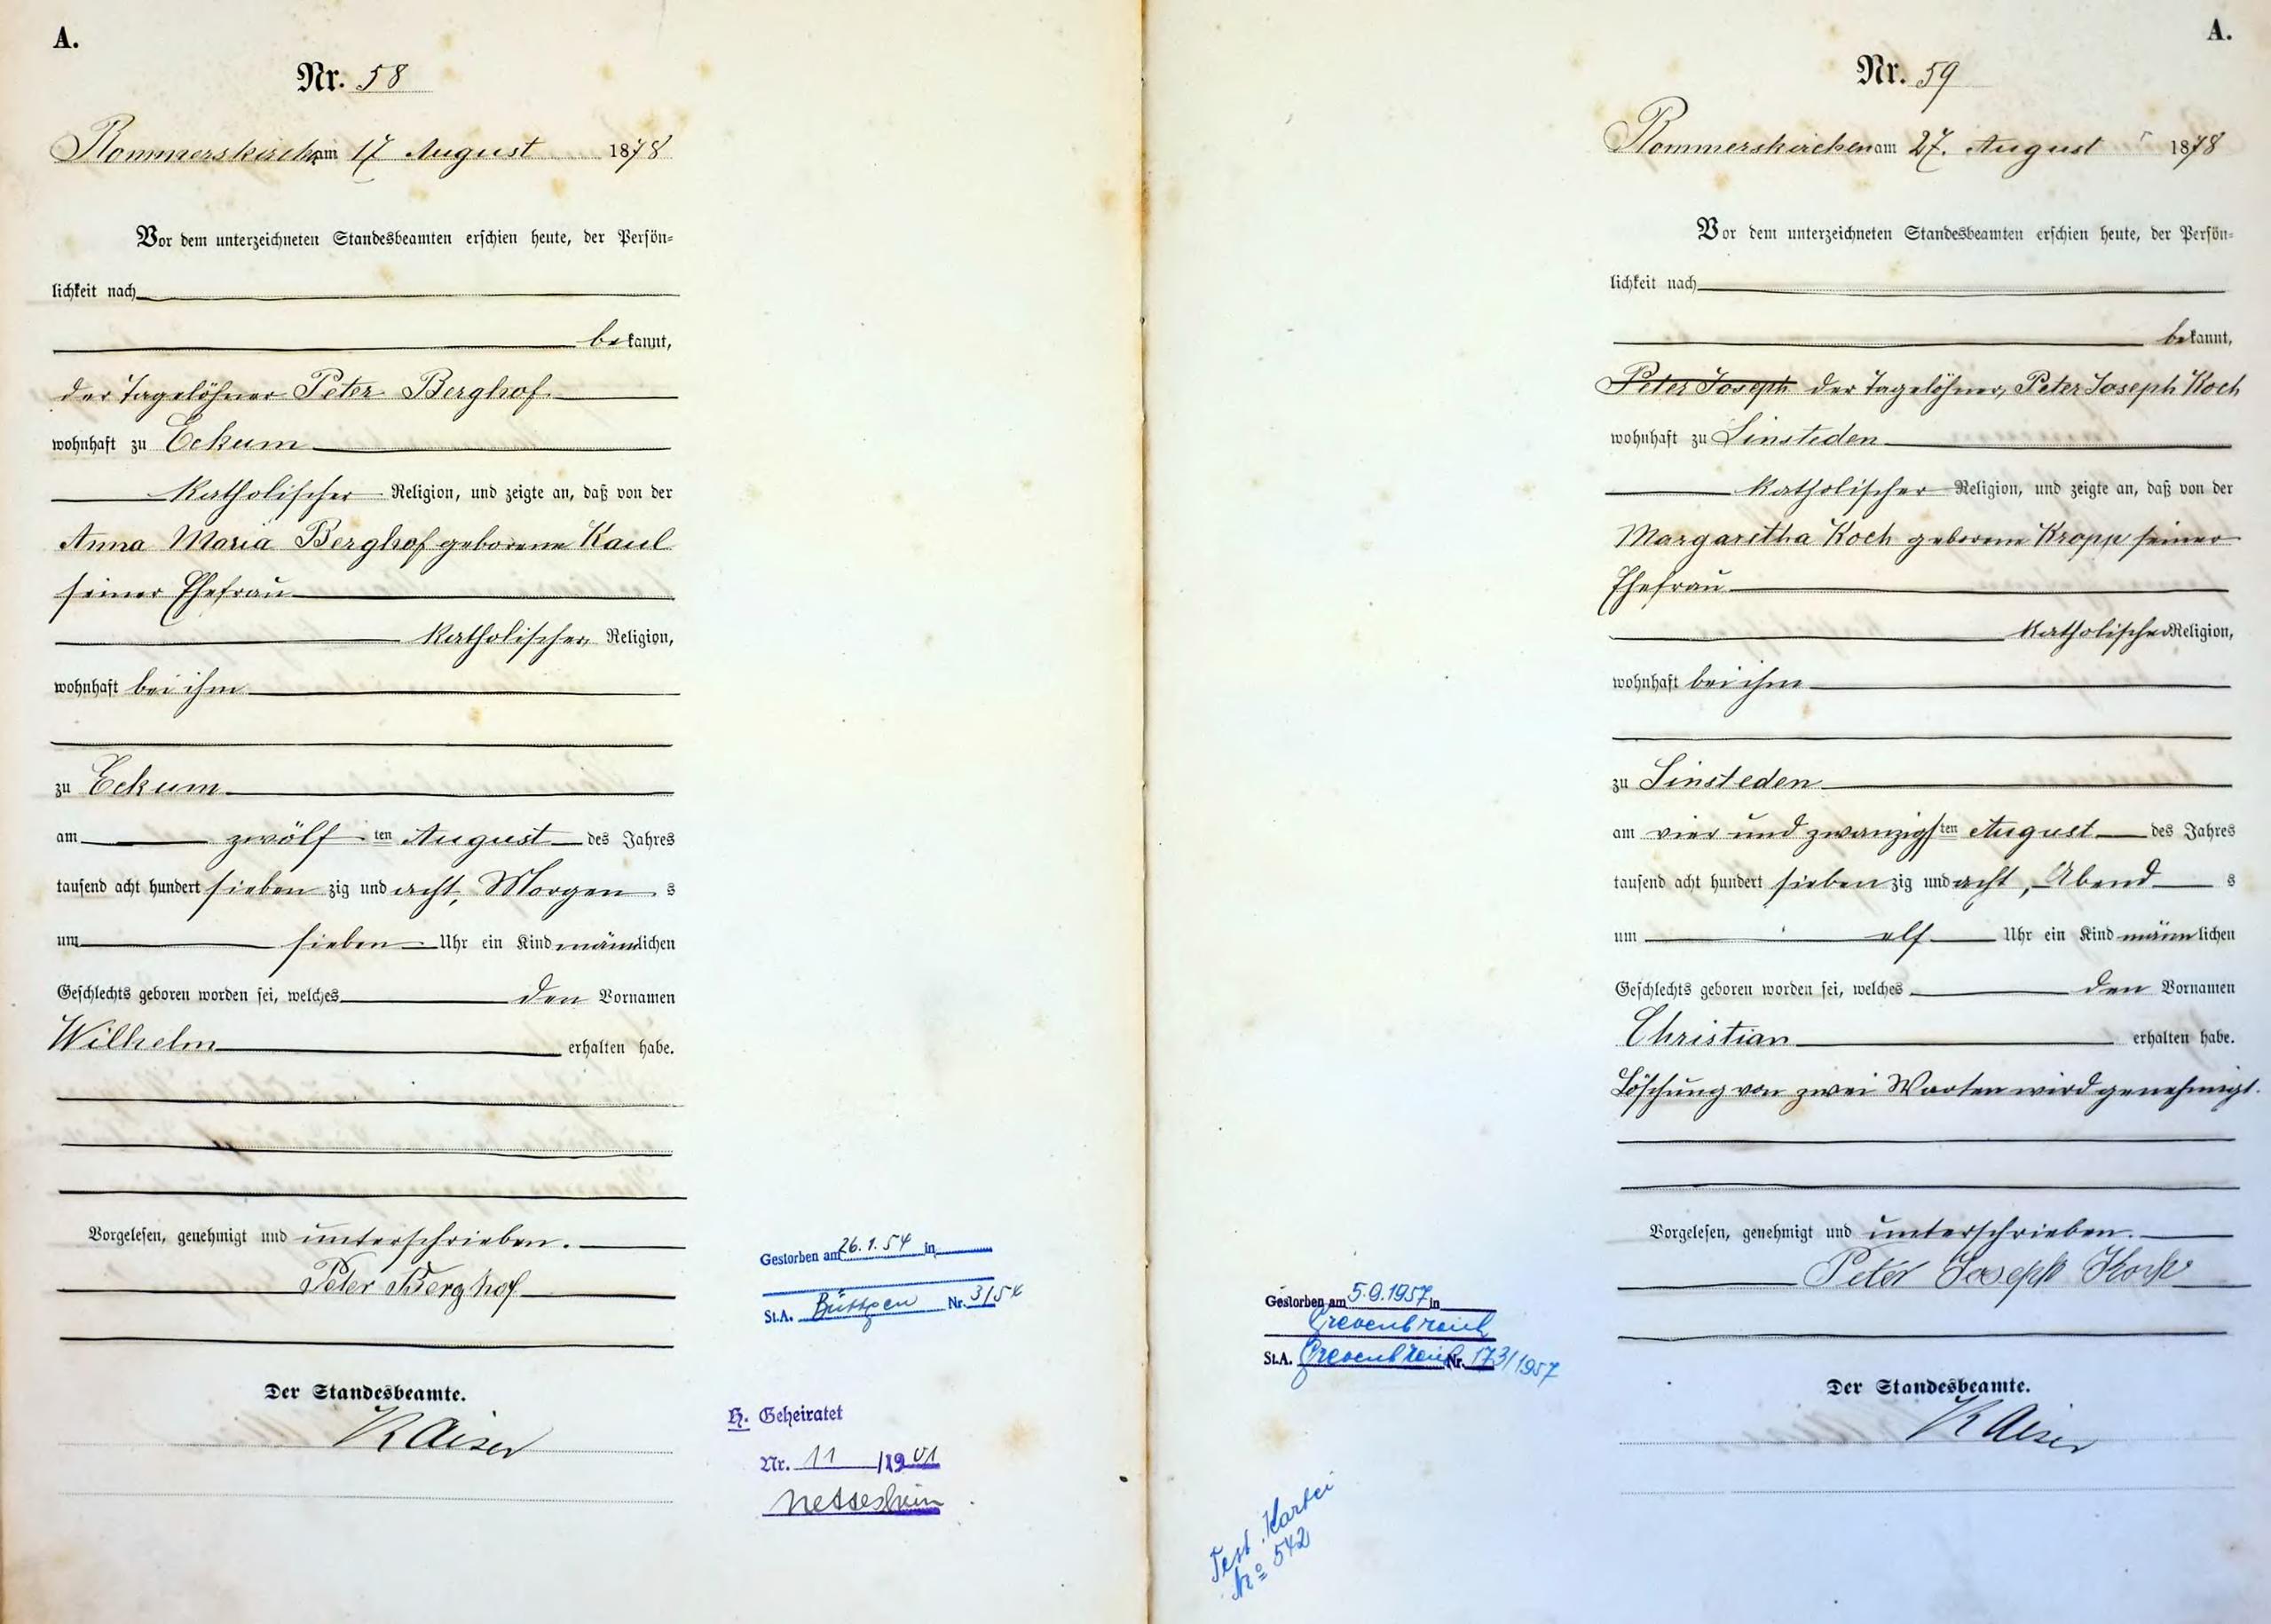 A.
Nr. 58
Rommerskirchen am 17 August 1878
Vor dem unterzeichneten Standesbeamten erschien heute, der Persön-
lichkeit nach
bekannt,
der Tagelöhner Peter Berghof
wohnhaft zu Eckum
katholischer Religion, und zeigte an, daß von der
Anna Maria Berghof geborene Kaul
seiner Ehefrau
katholischer Religion,
wohnhaft bei ihm
zu Eckum
am zwölf ten August des Jahres
tausend acht hundert sieben zig und acht, Morgen s
um sieben Uhr ein Kind männlichen
Geschlechts geboren worden sei, welches den Vornamen
Wilhelm erhalten habe.
Vorgelesen, genehmigt und unterschrieben.
Peter Berghof
Der Standesbeamte.
Kaiser
Gestorben am 26.1.54 in
St.A. Büttgen Nr. 3/54
H. Geheiratet
Nr. 11 /1901
Nettesheim
A.
Nr. 59
Rommerskirchen am 27. August 1878
Vor dem unterzeichneten Standesbeamten erschien heute, der Persön-
lichkeit nach
bekannt,
Peter Joseph der Tagelöhner, Peter Joseph Koch
wohnhaft zu Sinsteden
katholischer Religion, und zeigte an, daß von der
Margaretha Koch geborene Kropp seiner
Ehefrau
katholischer Religion,
wohnhaft bei ihm
zu Sinsteden
am vier und zwanzigsten August des Jahres
tausend acht hundert sieben zig und acht, Abend s
um elf Uhr ein Kind männlichen
Geschlechts geboren worden sei, welches den Vornamen
Christian erhalten habe.
Löschung von zwei Worten wird genehmigt.
Vorgelesen, genehmigt und unterschrieben.
Peter Joseph Koch
Der Standesbeamte.
Kaiser
Gestorben am 5.9.1957 in
Grevenbroich
St.A. Grevenbroich Nr. 173/1957
Test. Kartei
No 542